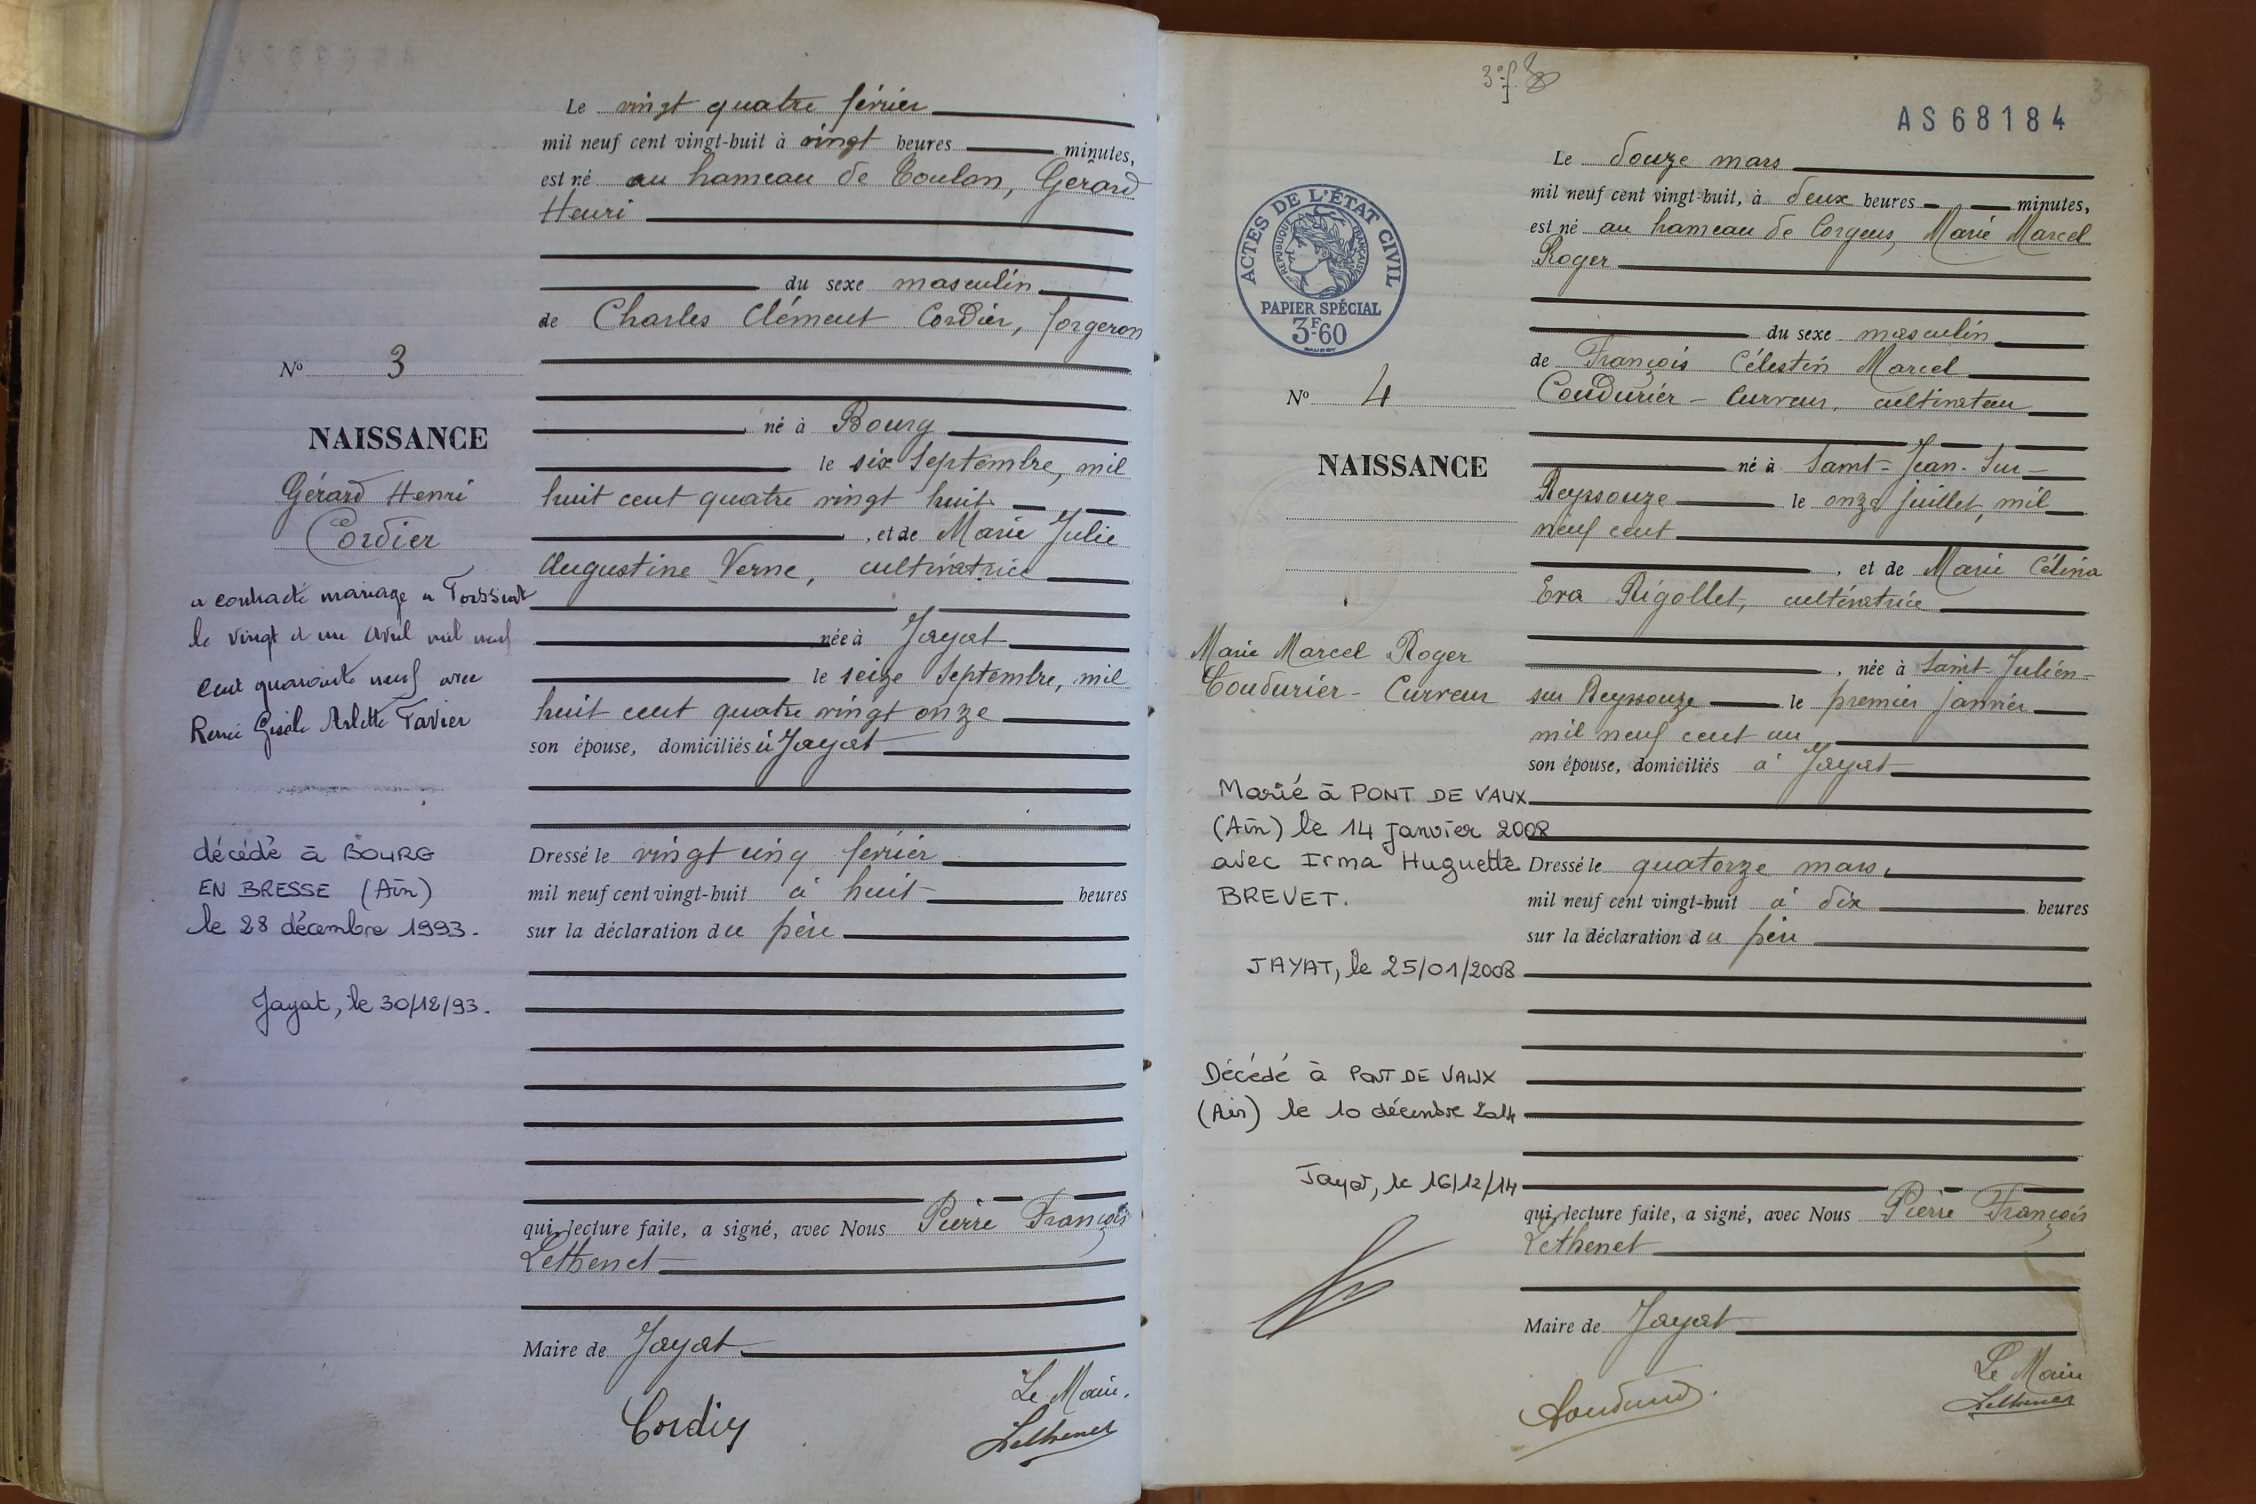 Le vingt quatre février
mil neuf cent vingt-huit à vingt heures minutes,
est né au hameau de Toulon, Gérard
Henri
du sexe masculin
de Charles Clément Cordier, forgeron
No 3
né à Bourg
NAISSANCE
le six Septembre, mil
Gérard Henri
huit cent quatre vingt huit
Cordier
, et de Marie Julie
Augustine Verne, cultivatrice
a contracté mariage a Foissiat
le vingt et un avril mil neuf
née à Jayat
cent quarante neuf avec
le seize Septembre, mil
Renée Gisèle Arlette Favier
huit cent quatre vingt onze
son épouse, domiciliés à Jayat
décédé à BOURG
EN BRESSE (Ain)
le 28 décembre 1993.
Jayat, le 30/12/93.
Dressé le vingt cinq février
mil neuf cent vingt-huit à huit heures
sur la déclaration du père
qui, lecture faite, a signé, avec Nous Pierre François
Lethenet
Maire de Jayat
Le Maire.
Cordier
Lethenet
3
AS68184
Le douze mars
mil neuf cent vingt-huit, à deux heures minutes,
est né au hameau de Corgeus, Marie Marcel
Roger
ACTES DE L'ÉTAT CIVIL
RÉPUBLIQUE FRANÇAISE
PAPIER SPÉCIAL
3F60
du sexe masculin
de François Célestin Marcel
No 4
Coudurier-Curveur, cultivateur
NAISSANCE
né à Saint-Jean-Sur-
Reyssouze le onze juillet, mil
neuf cent
, et de Marie Célina
Eva Rigollet, cultivatrice
Marie Marcel Roger
Coudurier-Curveur
, née à Saint-Julien-
sur Reyssouze le premier janvier
mil neuf cent un
son épouse, domiciliés à Jayat
Marié à PONT DE VAUX
(Ain) le 14 janvier 2008
avec Irma Huguette
BREVET.
JAYAT, le 25/01/2008
Dressé le quatorze mars,
mil neuf cent vingt-huit à dix heures
sur la déclaration du père
Décédé à PONT DE VAUX
(Ain) le 10 décembre 2014
Jayat, le 16/12/14
qui, lecture faite, a signé, avec Nous Pierre François
Lethenet
Maire de Jayat
Le Maire
Lethenet